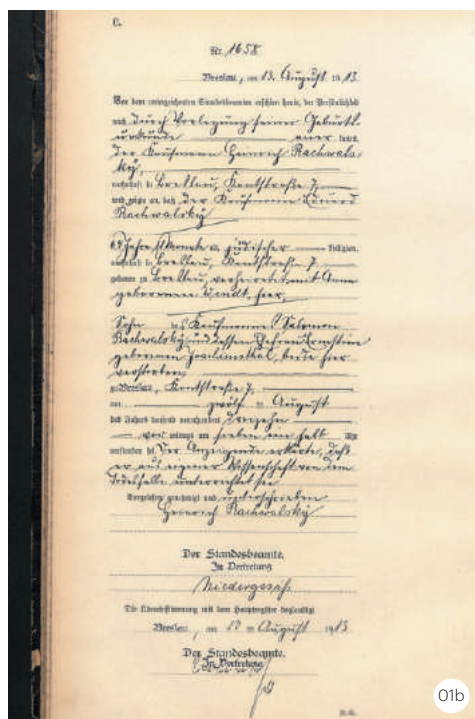 C.
Nr. 1658
Breslau, am 13. August 1913.
Vor dem unterzeichneten Standesbeamten erschien heute, der Persönlichkeit
nach durch Vorlegung seiner Geburts-
urkunde anerkannt,
der Kaufmann Heinrich Rachwals-
ky,
wohnhaft in Breslau, Kantstraße 7,
und zeigte an, daß der Kaufmann Eduard
Rachwalsky
Jahre Monate alt, jüdischer Religion,
wohnhaft in Breslau, Kantstraße 7,
geboren zu Breslau, verheiratet mit Anna
geborenen hier,
Sohn des Kaufmanns Salomon
Rachwalsky und dessen Ehefrau Ernestine
geborenen Joachimsthal, beide hier
verstorben,
zu Breslau, Kantstraße 7,
am zwölf ten August
des Jahres tausend neunhundert dreizehn
vormittags um sieben ein halb Uhr
verstorben sei. Der Anzeigende erklärte, daß
er aus eigener Wissenschaft von dem
Todesfalle unterrichtet sei
Vorgelesen, genehmigt und unterschrieben
Heinrich Rachwalsky
Der Standesbeamte.
In Vertretung
Die Übereinstimmung mit dem Hauptregister beglaubigt
Breslau, am 13 ten August 1913
Der Standesbeamte.
In Vertretung
01b